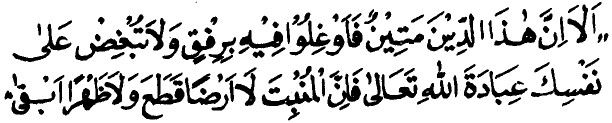 „اَلَا اِنَّ هٰذَا الدِّيْنَ مَتِيْنٌ فَاَوْغِلُوْا فِيْهِ بِرِفْقٍ وَلَا تُبْغِضْ عَلٰى
نَفْسِكَ عِبَادَةَ اللهِ تَعَالٰى فَاِنَّ الْمُنْبِتَ لَا اَرْضًا قَطَعَ وَلَا ظَهْرًا اَبْقٰى“